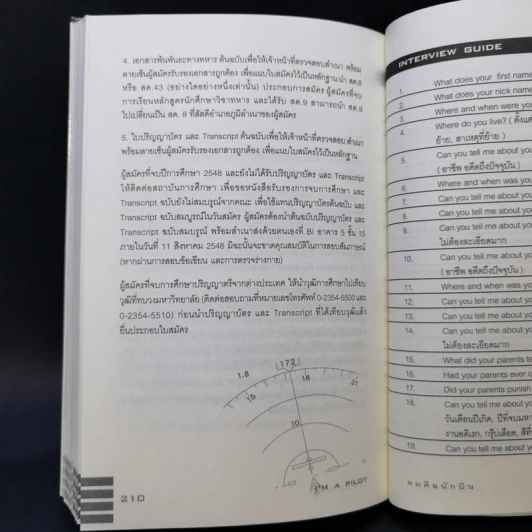 4. เอกสารพันธะทางทหาร ต้นฉบับเพื่อให้เจ้าหน้าที่ตรวจสอบสำเนา พร้อม
ลายเซ็นผู้สมัครรับรองเอกสารถูกต้อง เพื่อแนบใบสมัครไว้เป็นหลักฐาน นำ สด.8
หรือ สด.43 (อย่างใดอย่างหนึ่งเท่านั้น) ประกอบการสมัคร ผู้สมัครที่จบ
การเรียนหลักสูตรนักศึกษาวิชาทหาร และได้รับ สด.9 สามารถนำ สด.9
ไปเปลี่ยนเป็น สด. 8 ที่สัสดีอำเภอภูมิลำเนาของผู้สมัคร
5. ใบปริญญาบัตร และ Transcript ต้นฉบับเพื่อให้เจ้าหน้าที่ตรวจสอบ สำเนา
พร้อมลายเซ็นผู้สมัครรับรองเอกสารถูกต้อง เพื่อแนบใบสมัครไว้เป็นหลักฐาน
ผู้สมัครที่จบปีการศึกษา 2548 และยังไม่ได้รับปริญญาบัตร และ Transcript
ให้ติดต่อสถาบันการศึกษา เพื่อขอหนังสือรับรองการจบการศึกษา และ
Transcript ฉบับยังไม่สมบูรณ์จากคณะ เพื่อใช้แทนปริญญาบัตรต้นฉบับ และ
Transcript ฉบับสมบูรณ์ในวันสมัคร ผู้สมัครต้องนำต้นฉบับปริญญาบัตร และ
Transcript ฉบับสมบูรณ์ พร้อมสำเนาส่งด้วยตนเองที่ BI อาคาร 5 ชั้น 15
ภายในวันที่ 11 สิงหาคม 2548 มิฉะนั้นจะขาดคุณสมบัติในการสอบสัมภาษณ์
(หากผ่านการสอบข้อเขียน และการตรวจร่างกาย)
ผู้สมัครที่จบการศึกษาปริญญาตรีจากต่างประเทศ ให้นำวุฒิการศึกษาไปเทียบ
วุฒิที่ทบวงมหาวิทยาลัย (ติดต่อสอบถามที่หมายเลขโทรศัพท์ 0-2354-5500 และ
0-2354-5510) ก่อนนำปริญญาบัตร และ Transcript ที่ได้เทียบวุฒิแล้ว
ยื่นประกอบใบสมัคร
172
1.8
15
18
21
10
I'M A PILOT
210
INTERVIEW GUIDE
1. What does your first name
2. What does your nick name
3. Where and when were you
4. Where do you live? ( ตั้งแต่
ย้าย, สาเหตุที่ย้าย )
5. Can you tell me about you
( อาชีพ อดีตถึงปัจจุบัน )
6. Where and when was you
7. Can you tell me about you
8. Can you tell me about you
9. Can you tell me about you
ไม่ต้องละเอียดมาก
10. Can you tell me about you
( อาชีพ อดีตถึงปัจจุบัน )
11. Where and when was yo
12. Can you tell me about yo
13. Can you tell me about yo
14. Can you tell me about yo
ไม่ต้องละเอียดมาก
15. What did your parents te
16. Had your parents ever
17. Did your parents punish
18. Can you tell me about yo
วันเดือนปีเกิด, ปีที่จบมหา
งานอดิเรก, กรุ๊ปเลือด, สีที่
19. Can you tell me about yo
ผมคือนักบิน